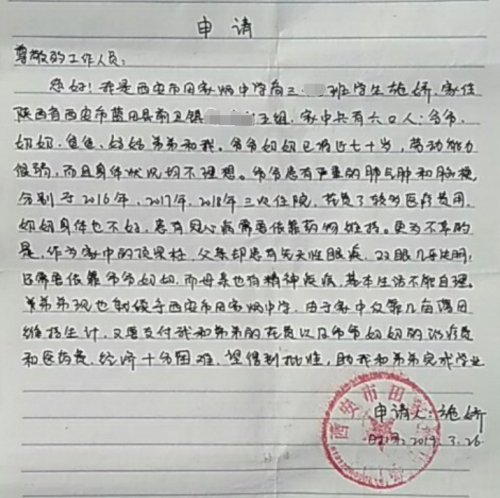 申请
尊敬的工作人员：
您好！我是西安市田家炳中学高三 班学生施娇，家住
陕西省西安市蓝田县前卫镇 五组，家中共有六口人：爷爷、
奶奶、爸爸、妈妈弟弟和我。爷爷奶奶已将近七十岁，劳动能力
很弱，而且身体状况均不理想。爷爷患有严重的肺气肿和脑梗，
分别于2016年，2017年，2018年三次住院，花费了较多医疗费用，
奶奶身体也不好，患有冠心病需要依靠药物维持。更为不幸的
是，作为家中的顶梁柱，父亲却患有先天性眼疾，双眼几乎失明，
只需要依靠爷爷奶奶，而母亲也有精神疾病，基本生活不能自理。
弟弟现也就读于西安市田家炳中学，由于家中仅靠几亩薄田
维持生计，又要支付我和弟弟的花费以及爷爷奶奶的治疗费
和医药费，经济十分困难，望得到批准，助我和弟弟完成学业
西安市田
申请人：施娇
日期：2019.3.26